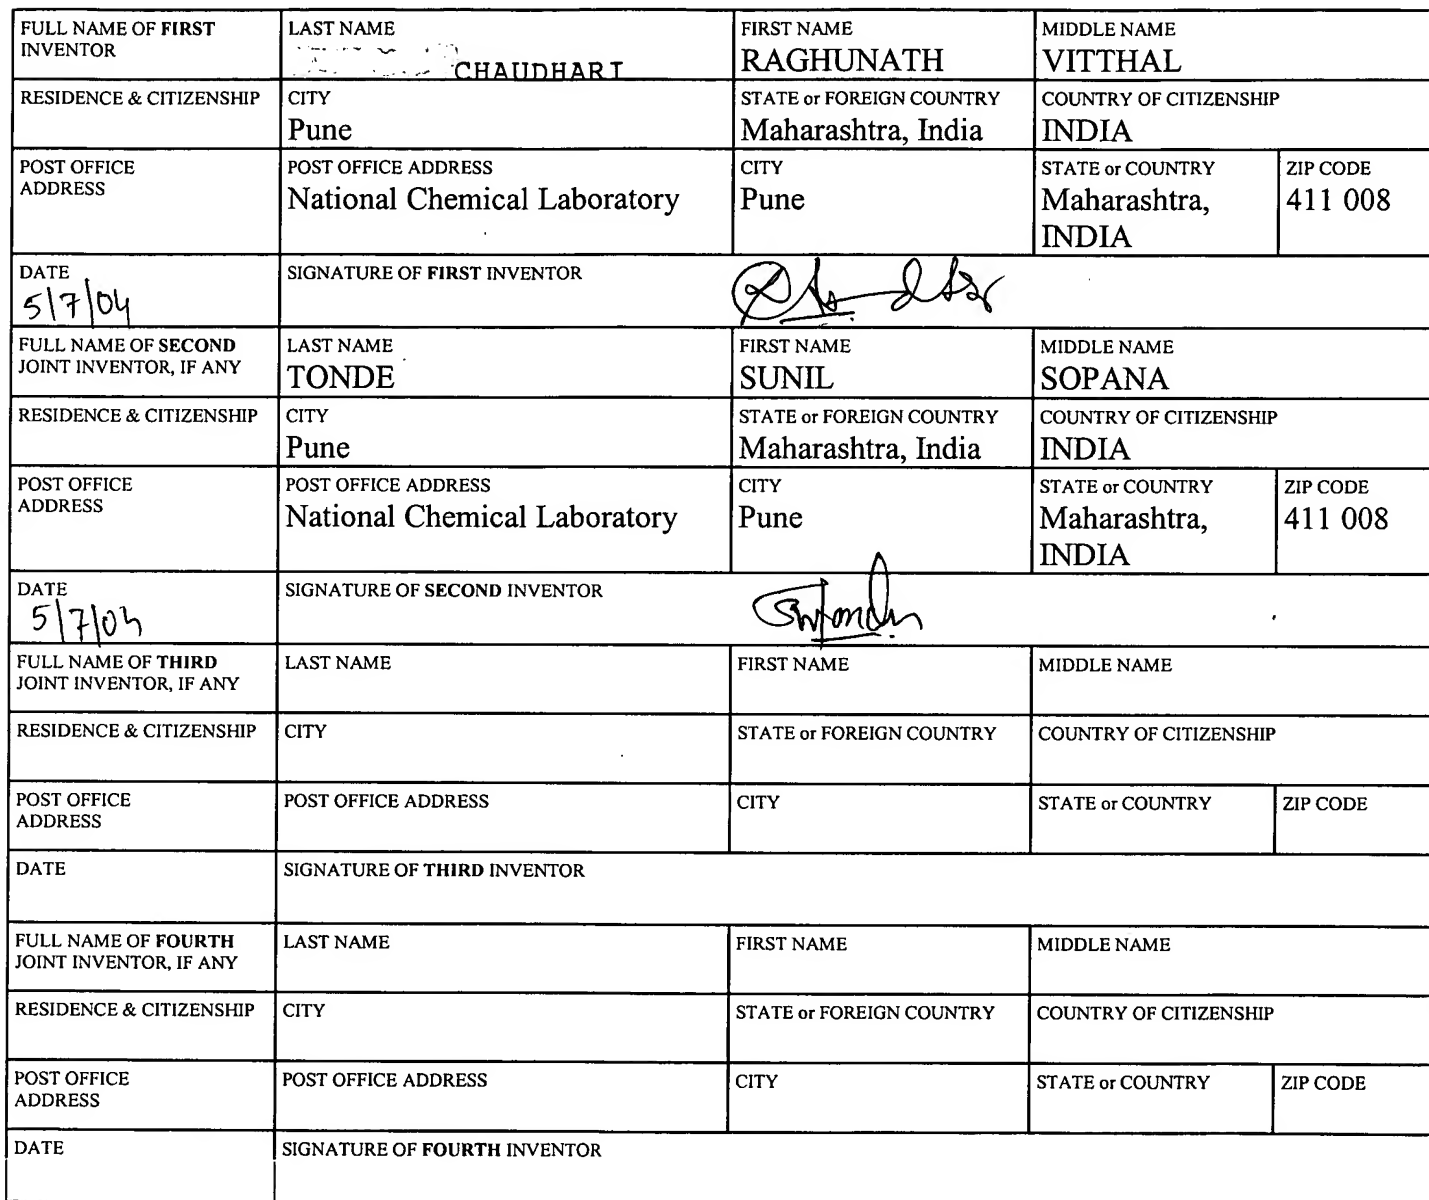 FULL NAME OF FIRST INVENTOR
LAST NAME
CHAUDHARI
FIRST NAME
RAGHUNATH
MIDDLE NAME
VITTHAL
RESIDENCE & CITIZENSHIP
CITY
Pune
STATE or FOREIGN COUNTRY
Maharashtra, India
COUNTRY OF CITIZENSHIP
INDIA
POST OFFICE
ADDRESS
POST OFFICE ADDRESS
National Chemical Laboratory
CITY
Pune
STATE or COUNTRY
Maharashtra,
INDIA
ZIP CODE
411 008
DATE
5/7/04
SIGNATURE OF FIRST INVENTOR
FULL NAME OF SECOND
JOINT INVENTOR, IF ANY
LAST NAME
TONDE
FIRST NAME
SUNIL
MIDDLE NAME
SOPANA
RESIDENCE & CITIZENSHIP
CITY
Pune
STATE or FOREIGN COUNTRY
Maharashtra, India
COUNTRY OF CITIZENSHIP
INDIA
POST OFFICE
ADDRESS
POST OFFICE ADDRESS
National Chemical Laboratory
CITY
Pune
STATE or COUNTRY
Maharashtra,
INDIA
ZIP CODE
411 008
DATE
SIGNATURE OF SECOND INVENTOR
FULL NAME OF THIRD
JOINT INVENTOR, IF ANY
LAST NAME
FIRST NAME
MIDDLE NAME
RESIDENCE & CITIZENSHIP
CITY
STATE or FOREIGN COUNTRY
COUNTRY OF CITIZENSHIP
POST OFFICE
ADDRESS
POST OFFICE ADDRESS
CITY
STATE or COUNTRY
ZIP CODE
DATE
SIGNATURE OF THIRD INVENTOR
FULL NAME OF FOURTH
JOINT INVENTOR, IF ANY
LAST NAME
FIRST NAME
MIDDLE NAME
RESIDENCE & CITIZENSHIP
CITY
STATE or FOREIGN COUNTRY
COUNTRY OF CITIZENSHIP
POST OFFICE
ADDRESS
POST OFFICE ADDRESS
CITY
STATE or COUNTRY
ZIP CODE
DATE
SIGNATURE OF FOURTH INVENTOR